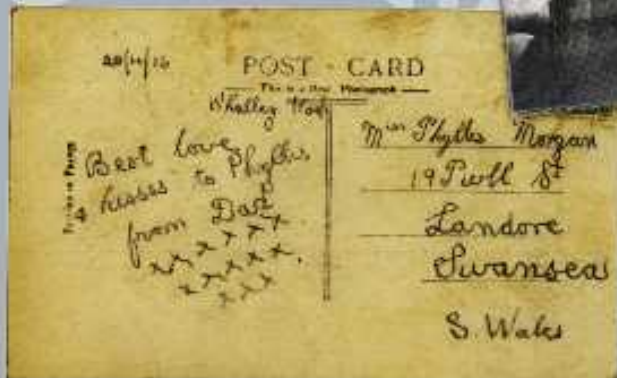 20/4/16
POST CARD
This is a Real Photograph
Whalley
Best love
& kisses to Phyllis
from Dad
x x x x x x
x x x x x.
x x x
Miss Phyllis Morgan
19 Pwll St
Landore
Swansea
S. Wales